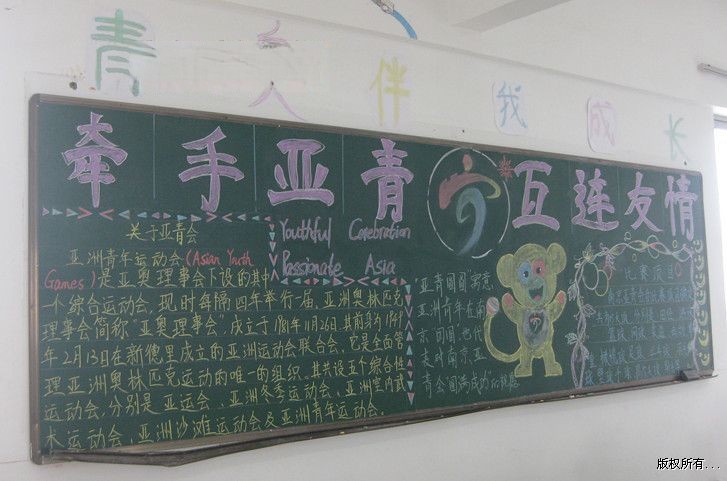 青 人 伴 我 成 长
牵手亚青 互连友情
关于亚青会
亚洲青年运动会(Asian Youth
Games)是亚奥理事会下设的其中
一个综合运动会,现时每隔四年举行一届,亚洲奥林匹克
理事会简称"亚奥理事会",成立于1981年11月26日,其前身为1949
年2月13日在新德里成立的亚洲运动会联合会,它是全面管
理亚洲奥林匹克运动的唯一的组织。其共设五个综合性
运动会,分别是亚运会、亚洲冬季运动会、亚洲室内武
术运动会、亚洲沙滩运动会及亚洲青年运动会。
Youthful Corebration
Passionate Asia
"亚青圆圆"寓意
亚洲青年在南
京"团圆",也代
表对南京亚
青会"圆满成功"的祝愿
比赛项目